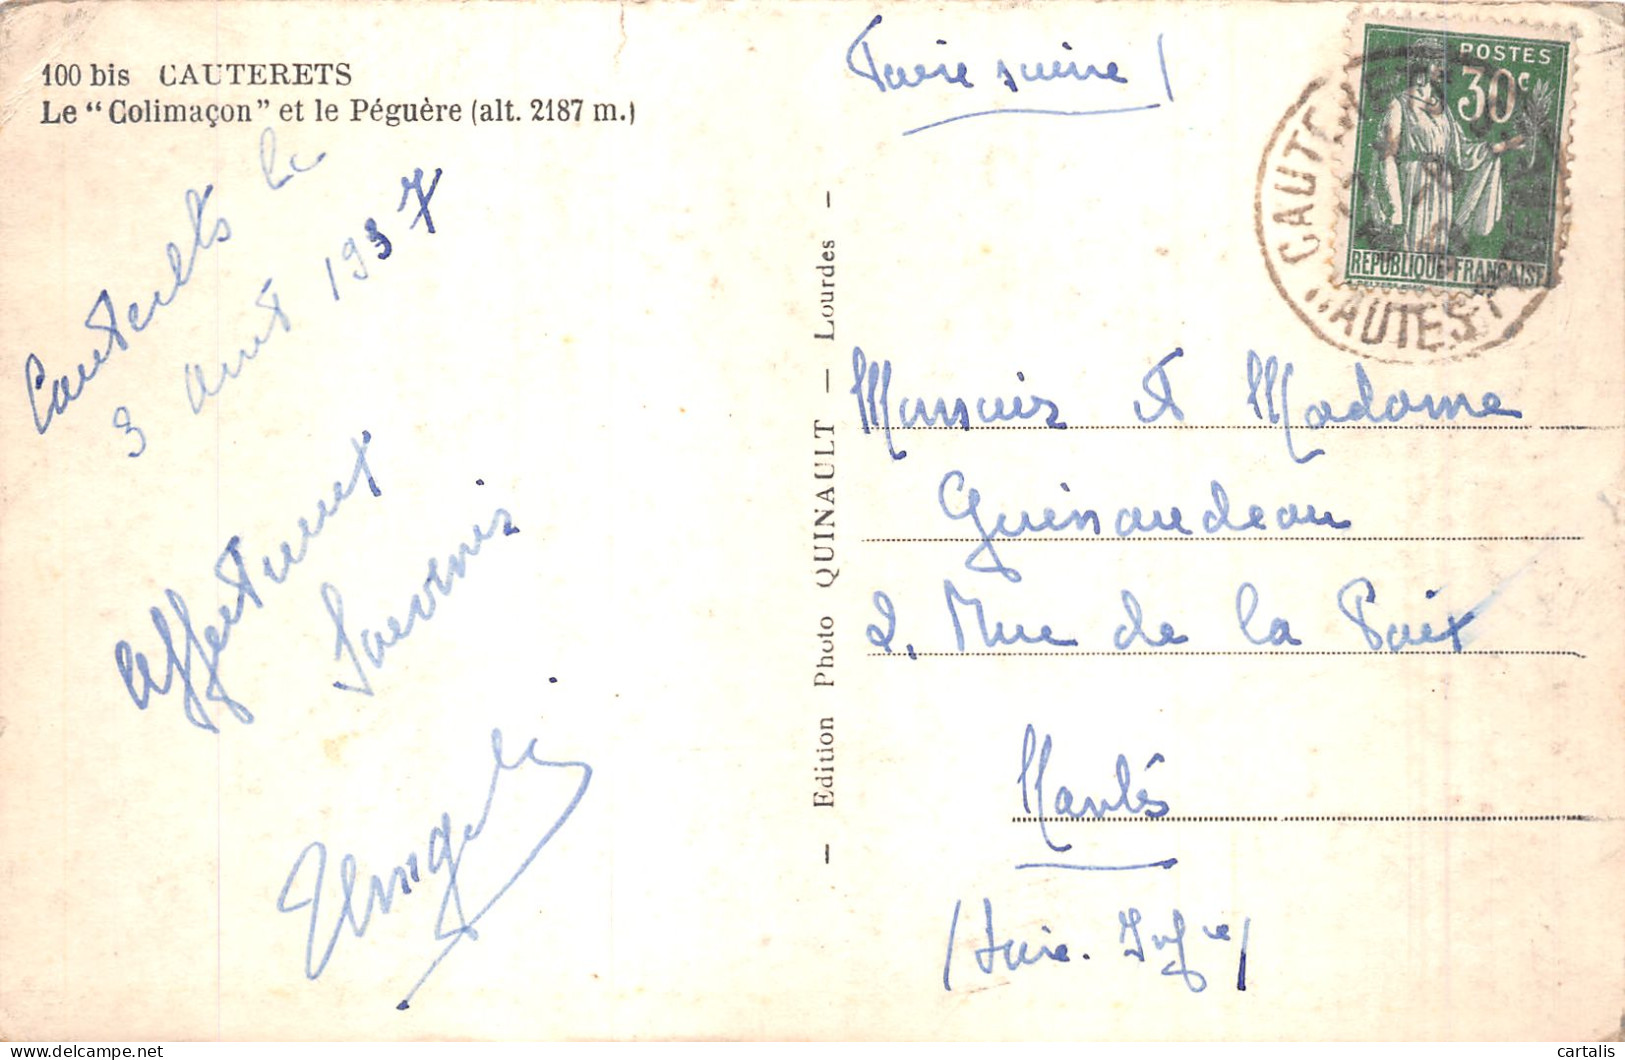 100 bis CAUTERETS
Le "Colimaçon" et le Péguère (alt. 2187 m.)
Cauterets le
3 août 1937
Affectueux
Souvenirs
Faire suivre /
POSTES
30c
REPUBLIQUE-FRANÇAISE
CAUTERETS
HAUTES
— Edition Photo QUINAULT — Lourdes —
Monsieur et Madame
2, Rue de la Paix
Nantes
(Loire. Infre)
cartalis
delcampe.net